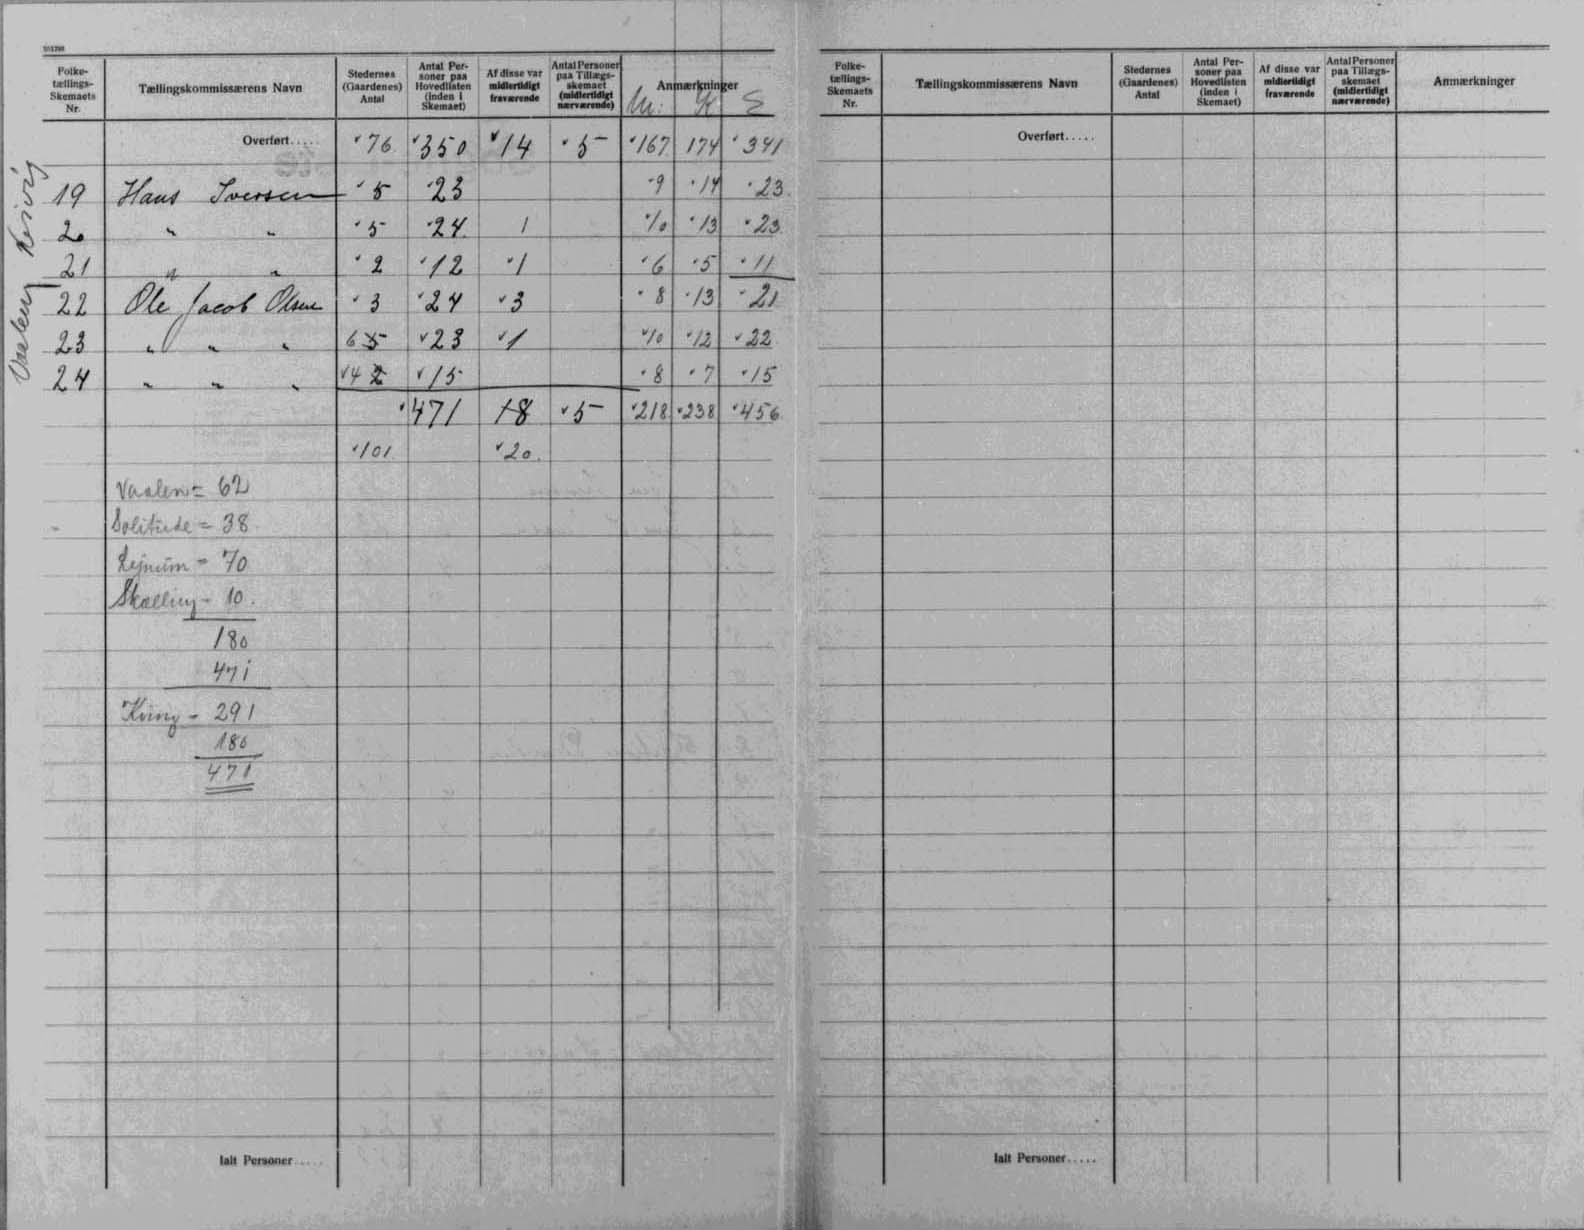 Folketællings-Skemaets Nr. Tællingskommissærens Navn Stedernes (Gaardenes) Antal Antal Personer paa Hovedlisten (inden i Skemaet) Af disse var midlertidigt fraværende Antal Personer paa Tillægsskemaet (midlertidigt nærværende) Anmærkninger
M. K E
Overført..... 76 350 14 5 167 174 341
19 Hans Iversen 5 23 9 14 23
20 " " 5 24 1 10 13 23
21 " " 2 12 1 6 5 11
22 Ole Jacob Olsen 3 24 3 8 13 21
23 " " " 6 5 23 1 10 12 22
24 " " " 4 2 15 8 7 15
471 18 5 218 238 456
101 20
Vaalen = 62
Solitude = 38
Lejnum = 70
Skælling - 10
180
471
Kving - 291
180
471
Ialt Personer.....
Folketællings-Skemaets Nr. Tællingskommissærens Navn Stedernes (Gaardenes) Antal Antal Personer paa Hovedlisten (inden i Skemaet) Af disse var midlertidigt fraværende Antal Personer paa Tillægsskemaet (midlertidigt nærværende) Anmærkninger
Overført.....
Ialt Personer.....